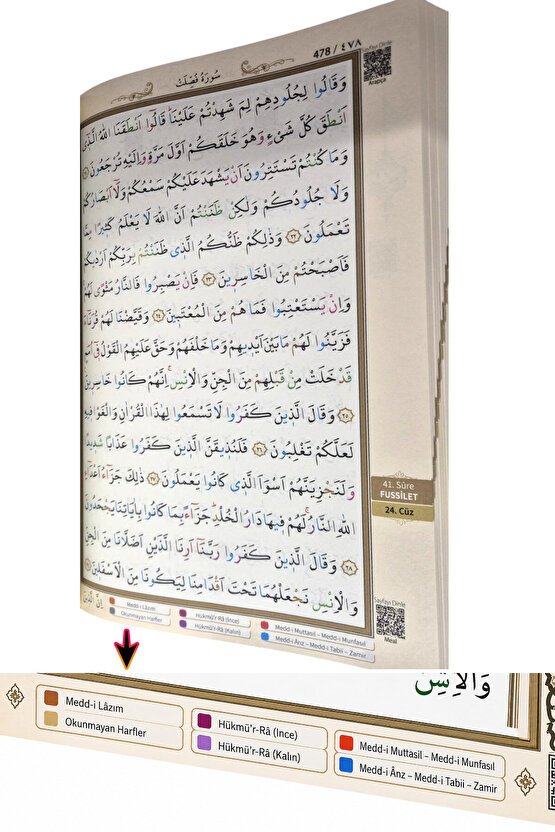 478 / ٤٧٨
سُورَةُ فُصِّلَتْ
Sayfayı Dinle
Arapça
وَقَالُوا لِجُلُودِهِمْ لِمَ شَهِدْتُمْ عَلَيْنَاۜ قَالُٓوا اَنْطَقَنَا اللّٰهُ الَّذ۪ٓي
اَنْطَقَ كُلَّ شَيْءٍ وَهُوَ خَلَقَكُمْ اَوَّلَ مَرَّةٍ وَاِلَيْهِ تُرْجَعُونَ
وَمَا كُنْتُمْ تَسْتَتِرُونَ اَنْ يَشْهَدَ عَلَيْكُمْ سَمْعُكُمْ وَلَٓا اَبْصَارُكُمْ
وَلَا جُلُودُكُمْ وَلٰكِنْ ظَنَنْتُمْ اَنَّ اللّٰهَ لَا يَعْلَمُ كَث۪يرًا مِمَّا
تَعْمَلُونَ ﴿٢٢﴾ وَذٰلِكُمْ ظَنُّكُمُ الَّذ۪ي ظَنَنْتُمْ بِرَبِّكُمْ اَرْدٰيكُمْ
فَاَصْبَحْتُمْ مِنَ الْخَاسِر۪ينَ ﴿٢٣﴾ فَاِنْ يَصْبِرُوا فَالنَّارُ مَثْوًى لَهُمْ
وَاِنْ يَسْتَعْتِبُوا فَمَا هُمْ مِنَ الْمُعْتَب۪ينَ ﴿٢٤﴾ وَقَيَّضْنَا لَهُمْ قُرَنَٓاءَ
فَزَيَّنُوا لَهُمْ مَا بَيْنَ اَيْد۪يهِمْ وَمَا خَلْفَهُمْ وَحَقَّ عَلَيْهِمُ الْقَوْلُ ف۪ٓي اُمَمٍ
قَدْ خَلَتْ مِنْ قَبْلِهِمْ مِنَ الْجِنِّ وَالْاِنْسِۚ اِنَّهُمْ كَانُوا خَاسِر۪ينَ
﴿٢٥﴾ وَقَالَ الَّذ۪ينَ كَفَرُوا لَا تَسْمَعُوا لِهٰذَا الْقُرْاٰنِ وَالْغَوْا ف۪يهِ
لَعَلَّكُمْ تَغْلِبُونَ ﴿٢٦﴾ فَلَنُذ۪يقَنَّ الَّذ۪ينَ كَفَرُوا عَذَابًا شَد۪يدًا
وَلَنَجْزِيَنَّهُمْ اَسْوَاَ الَّذ۪ي كَانُوا يَعْمَلُونَ ﴿٢٧﴾ ذٰلِكَ جَزَٓاءُ اَعْدَٓاءِ
اللّٰهِ النَّارُۚ لَهُمْ ف۪يهَا دَارُ الْخُلْدِۜ جَزَٓاءً بِمَا كَانُوا بِاٰيَاتِنَا يَجْحَدُونَ
﴿٢٨﴾ وَقَالَ الَّذ۪ينَ كَفَرُوا رَبَّنَٓا اَرِنَا الَّذَيْنِ اَضَلَّانَا مِنَ الْجِنِّ
وَالْاِنْسِ نَجْعَلْهُمَا تَحْتَ اَقْدَامِنَا لِيَكُونَا مِنَ الْاَسْفَل۪ينَ
اِنَّ الَّذ۪ينَ
41. Sûre
FUSSİLET
24. Cüz
Sayfayı Dinle
Meal
Medd-i Lâzım
Okunmayan Harfler
Hükmü'r-Râ (İnce)
Hükmü'r-Râ (Kalın)
Medd-i Muttasil – Medd-i Munfasıl
Medd-i Ârız – Medd-i Tabii – Zamir
وَالْاِنْسِ
Medd-i Lâzım
Okunmayan Harfler
Hükmü'r-Râ (İnce)
Hükmü'r-Râ (Kalın)
Medd-i Muttasil – Medd-i Munfasıl
Medd-i Ârız – Medd-i Tabii – Zamir